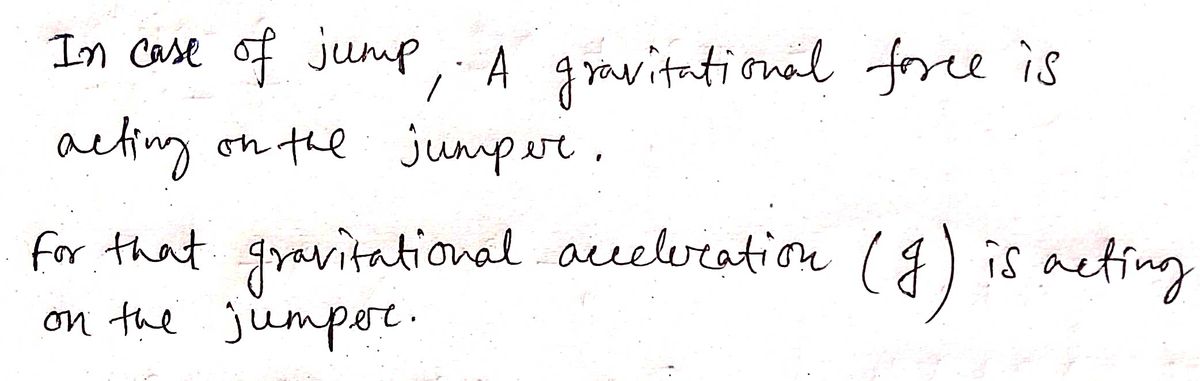 In case of jump, A gravitational force is
acting on the jumper.
For that gravitational acceleration (g) is acting
on the jumper.